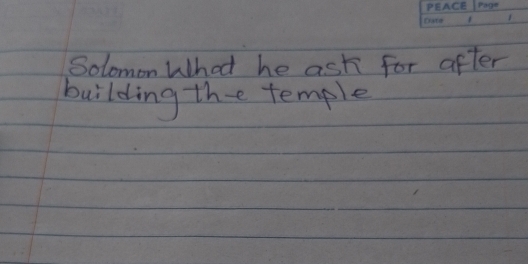 PEACE Page
Date / /
Solomon What he ask for after
building the temple